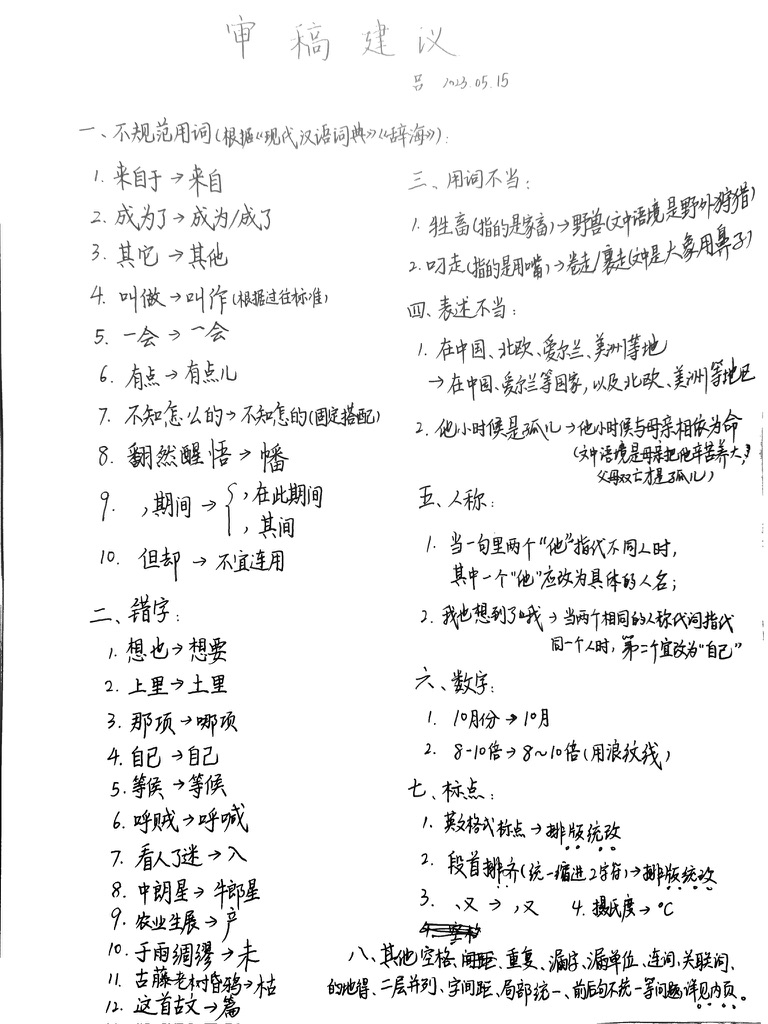 审稿建议
吕 2023.05.15
一、不规范用词(根据《现代汉语词典》《辞海》):
1. 来自于→来自
2. 成为了→成为/成了
3. 其它→其他
4. 叫做→叫作(根据过往标准)
5. 一会→一会
6. 有点→有点儿
7. 不知怎么的→不知怎的(固定搭配)
8. 翻然醒悟→幡
9. ,期间→{,在此期间
,其间
10. 但却→不宜连用
二、错字:
1. 想也→想要
2. 上里→土里
3. 那项→哪项
4. 自已→自己
5. 等侯→等候
6. 呼贼→呼喊
7. 看人了迷→入
8. 中朗星→牛郎星
9. 农业生展→产
10. 于雨绸缪→未
11. 古藤老树昏鸦→枯
12. 这首古文→篇
三、用词不当:
1. 牲畜(指的是家畜)→野兽(文中语境是野外狩猎)
2. 叼走(指的是用嘴)→卷走/裹走(文中是大象用鼻子)
四、表述不当:
1. 在中国、北欧、爱尔兰、美洲等地
→在中国、爱尔兰等国家,以及北欧、美洲等地区
2. 他小时候是孤儿→他小时候与母亲相依为命
(文中语境是母亲把他辛苦养大,
父母双亡才是孤儿)
五、人称:
1. 当一句里两个“他”指代不同人时,
其中一个“他”应改为具体的人名;
2. 我也想到了我→当两个相同的人称代词指代
同一个人时,第二个宜改为“自己”
六、数字:
1. 10月份→10月
2. 8-10倍→8~10倍(用浪纹线)
七、标点:
1. 英文格式标点→排版统改
2. 段首排齐(统一缩进2字符)→排版统改
3. 、又→,又 4. 摄氏度→℃
八、其他空格、间距、重复、漏字、漏单位、连词、关联词、
的地得、二层并列、字间距、局部统一、前后句不统一等问题详见内页。